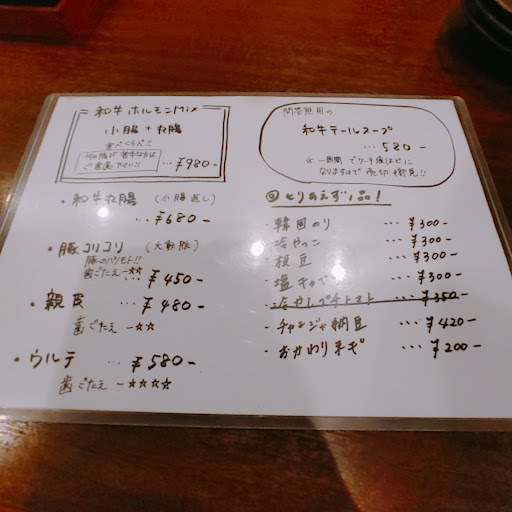 和牛ホルモンMix
小腸 + 丸腸
食べくらべ!!
ご遠慮下さい!!
… ¥980-
・和牛丸腸 (小腸返し)
… ¥680-
・豚コリコリ (大動脈)
豚のハツモト!!
歯ごたえ ー☆☆
… ¥450-
・親皮 … ¥480-
歯ごたえ ー☆☆
・ウルテ … ¥580-
歯ごたえ ー☆☆☆☆
問答無用の
和牛テールスープ
… 580-
なりますので 売切 御免!!
◎とりあえず1品!
・韓国のり … ¥300-
・冷やっこ … ¥300-
・枝豆 … ¥300-
・塩キャベ … ¥300-
・冷やしプチトマト … ¥350-
・チャンジャ納豆 … ¥420-
・おかわりネギ … ¥200-